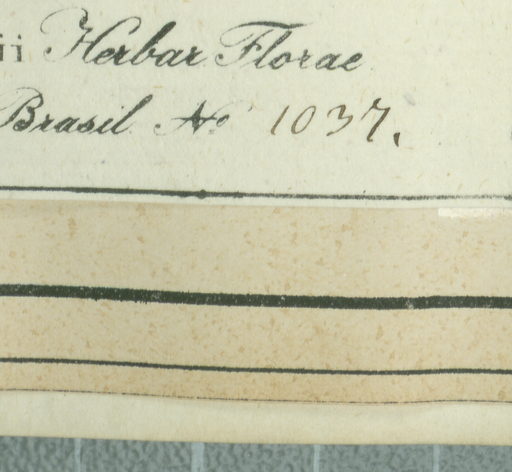 ii Herbar Florae
Brasil No 1037.